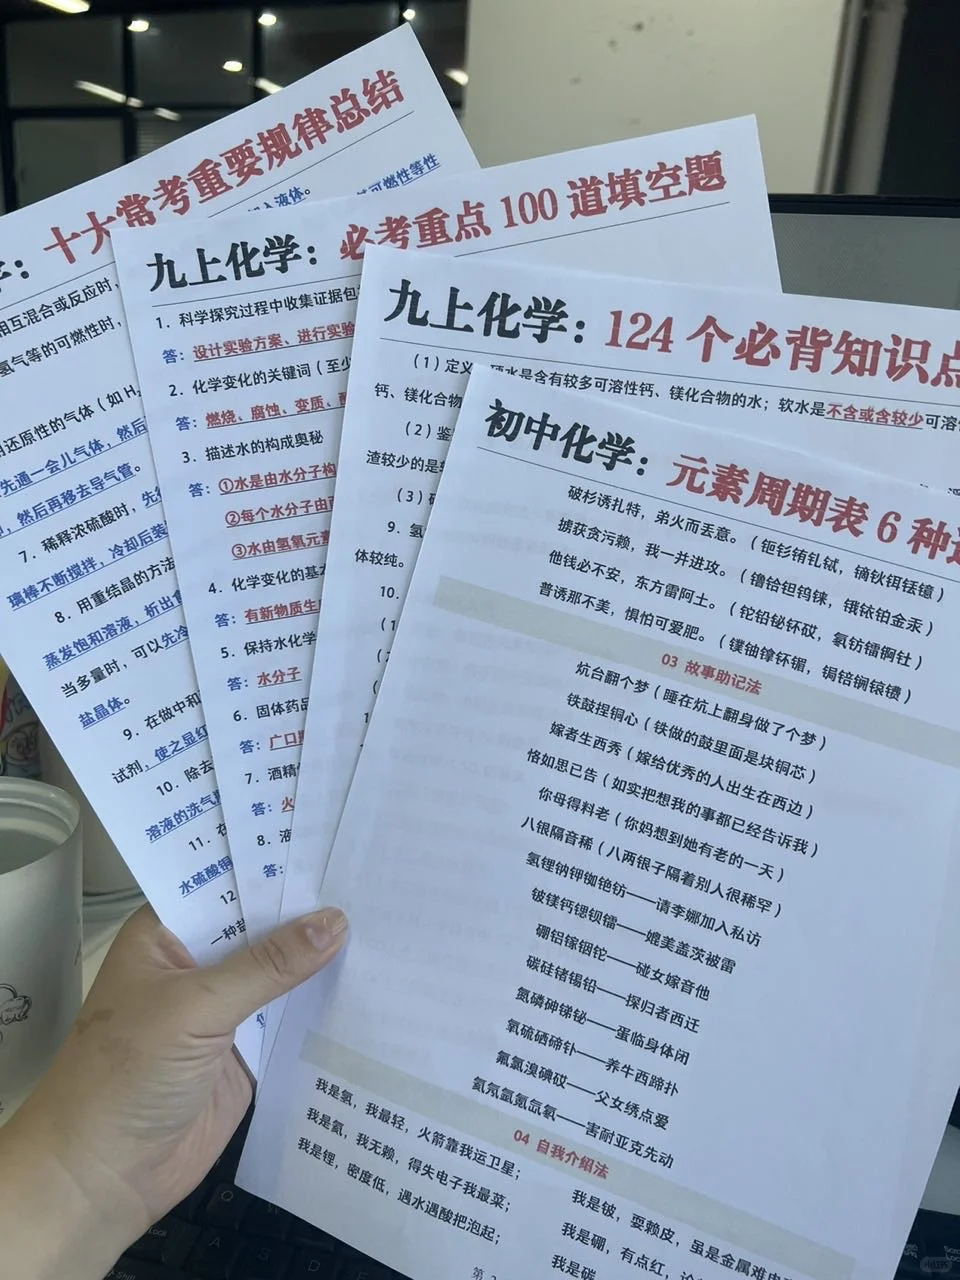 学：十大常考重要规律总结
加入液体。
可燃性等性
相互混合或反应时，
氢气等的可燃性时，
还原性的气体（如 H
先通一会儿气体，然后
，然后再移去导气管。
7. 稀释浓硫酸时，先
璃棒不断搅拌，冷却后装
8. 用重结晶的方法
蒸发饱和溶液，析出
当多量时，可以先冷
盐晶体。
9. 在做中和
试剂，使之显红
10. 除去
溶液的洗气
11. 在
水硫酸铜
12
一种盐
九上化学：必考重点 100 道填空题
1. 科学探究过程中收集证据包
答：设计实验方案、进行实验
2. 化学变化的关键词（至少
答：燃烧、腐蚀、变质、
3. 描述水的构成奥秘
答：①水是由水分子构
②每个水分子由
③水由氢氧元素
4. 化学变化的基本
答：有新物质生
5. 保持水化学
答：水分子
6. 固体药品
答：广口
7. 酒精
答：火
8. 液
答：
九上化学：124 个必背知识点
（1）定义：硬水是含有较多可溶性钙、镁化合物的水；软水是不含或含较少可溶
钙、镁化合物
（2）鉴
渣较少的是
（3）
9. 氢
体较纯。
10.
初中化学：元素周期表 6 种
破杉诱扎特，弟火而丢意。（钷钐铕钆铽，镝钬铒铥镱）
掳获贪污赖，我一并进攻。（镥铪钽钨铼，锇铱铂金汞）
他钱必不安，东方雷阿土。（铊铅铋钚砹，氡钫镭锕钍）
普诱那不美，惧怕可爱肥。（镤铀镎钚镅，锔锫锎锿镄）
03 故事助记法
炕台翻个梦（睡在炕上翻身做了个梦）
铁鼓捏铜心（铁做的鼓里面是块铜芯）
嫁者生西秀（嫁给优秀的人出生在西边）
恪如思已告（如实把想我的事都已经告诉我）
你母得料老（你妈想到她有老的一天）
八银隔音稀（八两银子隔着别人很稀罕）
氢锂钠钾铷铯钫——请李娜加入私访
铍镁钙锶钡镭——媲美盖茨被雷
硼铝镓铟铊——碰女嫁音他
碳硅锗锡铅——探归者西迁
氮磷砷锑铋——蛋临身体闭
氧硫硒碲钋——养牛西蹄扑
氟氯溴碘砹——父女绣点爱
氦氖氩氪氙氡——害耐亚克先动
04 自我介绍法
我是氢，我最轻，火箭靠我运卫星；
我是氦，我无赖，得失电子我最菜；
我是锂，密度低，遇水遇酸把泡起；
我是铍，耍赖皮，虽是金属难
我是硼，有点红，
我是碳
第 2
小红书